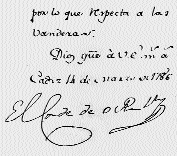 por lo que respecta a las
vanderas.
Dios gũe à V.E. m.s a.s
Cadiz 14 de Marzo de 1786
El Conde de O Reilly